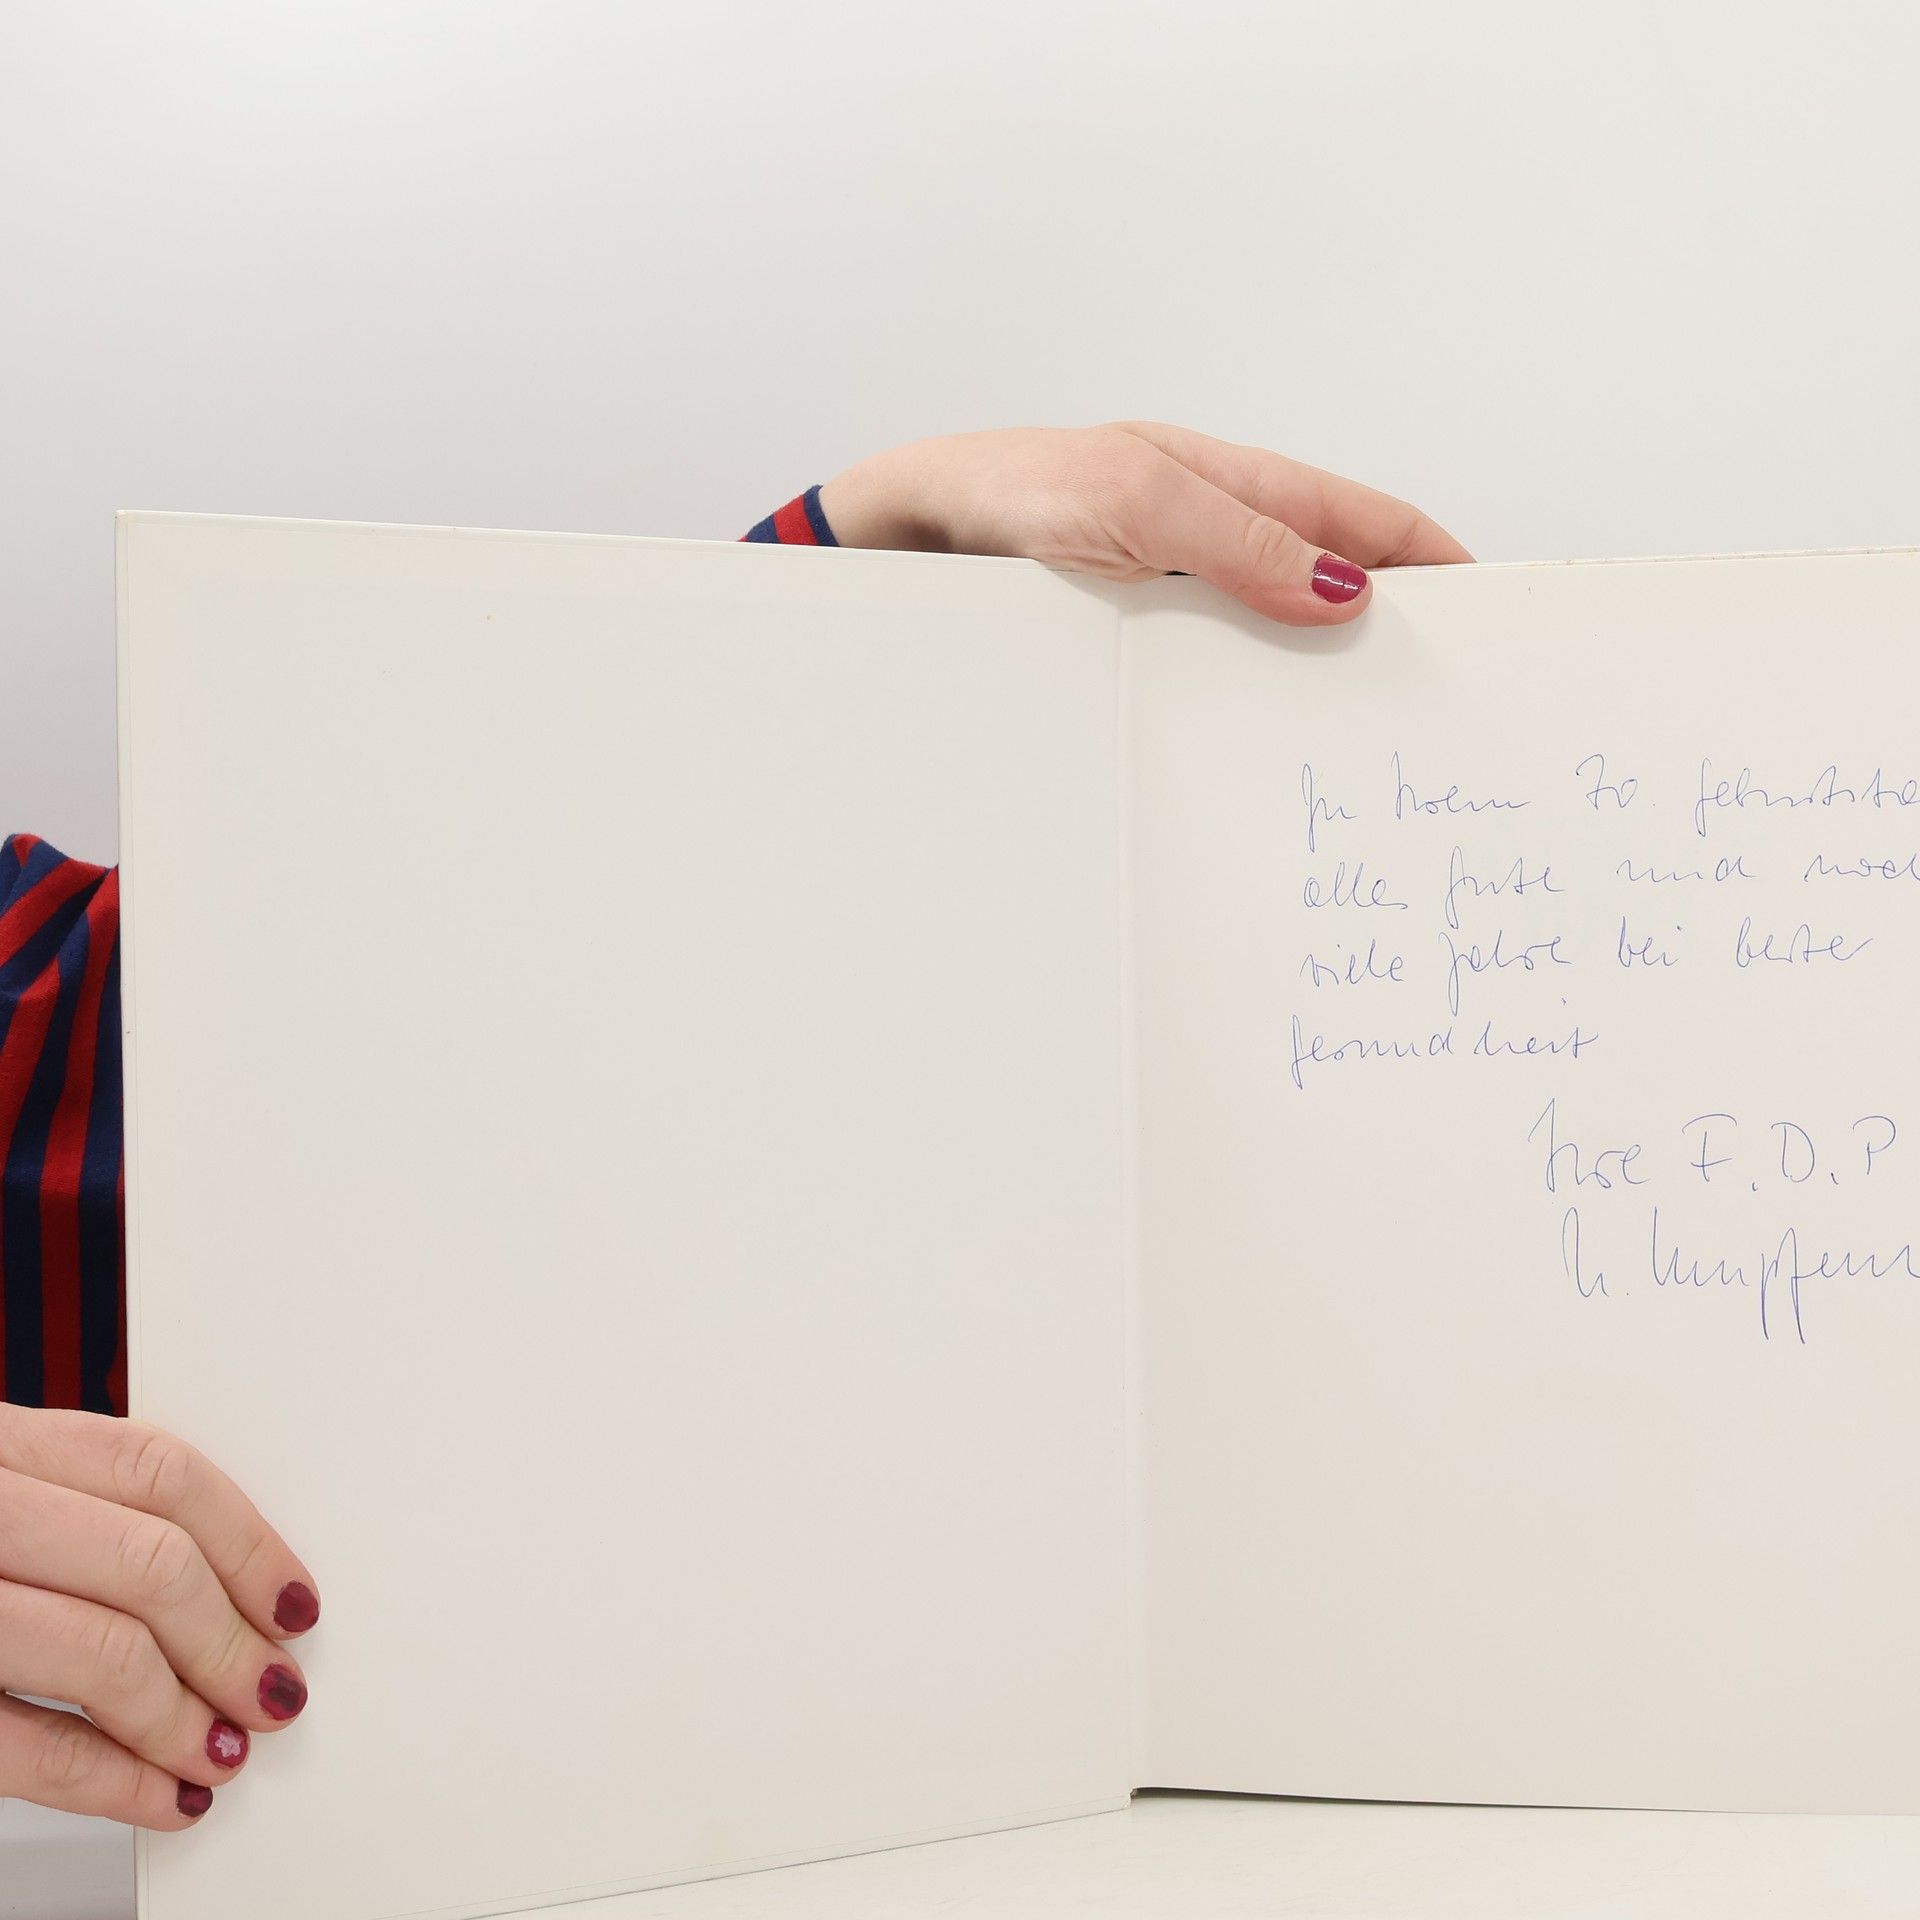 Zu Ihrem 70. Geburtsta
alles Gute und noch
viele Jahre bei bester
Gesundheit
Ihre F.D.P